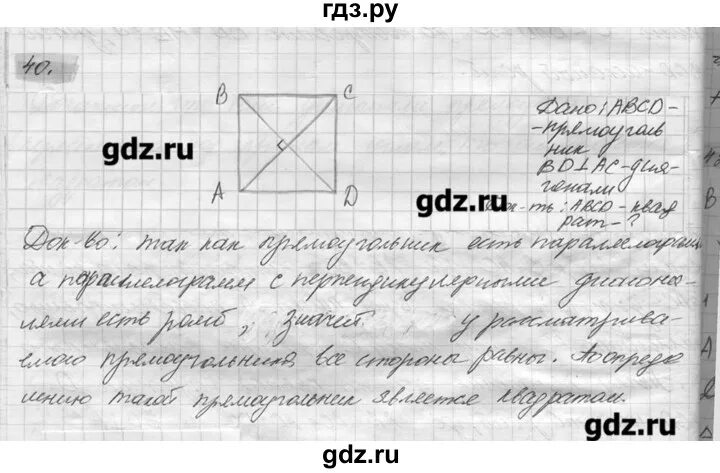 гдз.ру
40.
B C
A D
gdz.ru
Дано: ABCD-
-прямоуголь
ник
BD⊥AC-диа-
гонали
gdz.ru
Док-ть: ABCD-квад
рат-?
Док-во: так как прямоугольник есть параллелограмм,
а параллелограмм с перпендикулярными диагона-
лями есть ромб, значит у рассматрива-
емого прямоугольника все стороны равны. По опреде
лению такой прямоугольник является квадратом.
gdz.ru